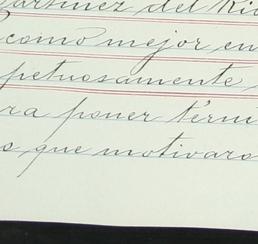 artínez del Río
como mejor en
petuosamente
ra poner térmi
s que motivaro